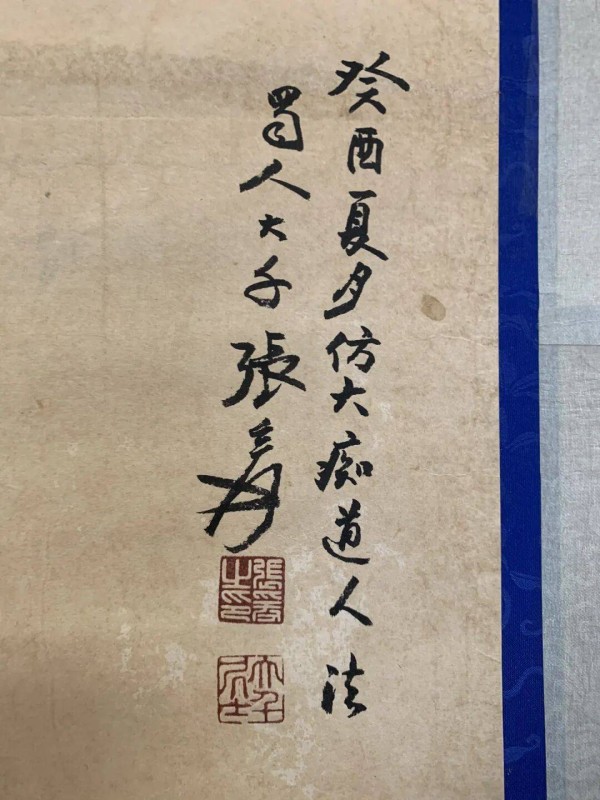 癸酉夏夕仿大痴道人法
蜀人大千張爰
張爰之印
大千居士